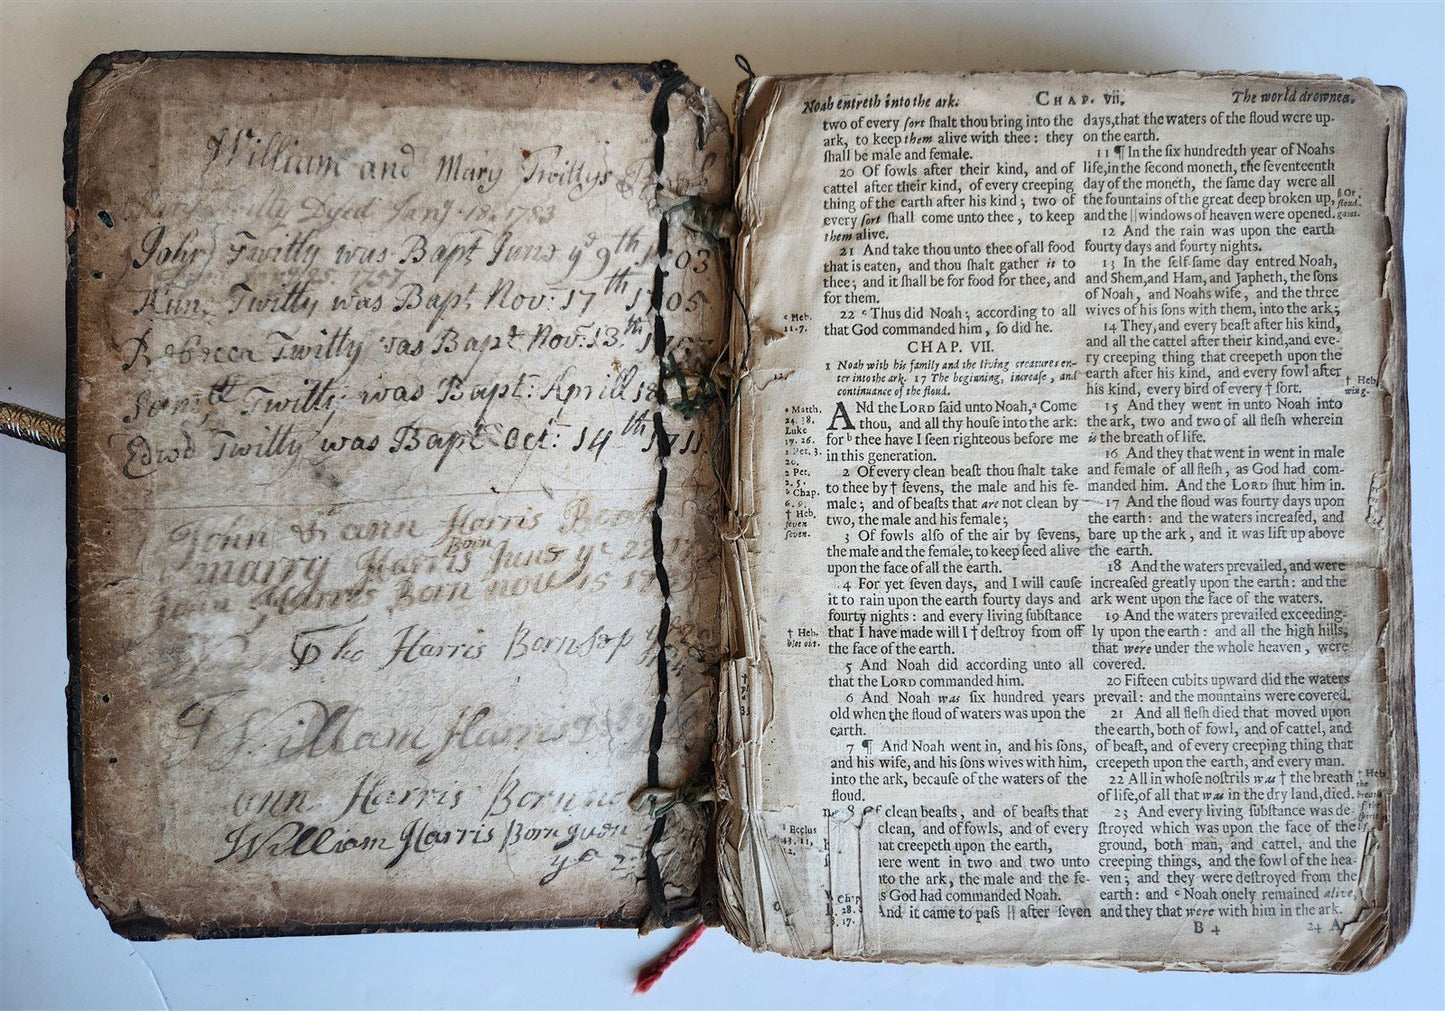 William and Mary Twittys
Dyed Janʸ 18. 1783
John Twitty was Bapᵗ June yᵉ 9ᵗʰ 1703
Ann Twitty was Bapᵗ Nov: 17ᵗʰ 1705
Rebecca Twitty was Bapᵗ Nov: 13ᵗʰ
Samˡˡ Twitty was Bapᵗ: Aprill 18
Edwd Twitty was Bapᵗ Octʳ: 14ᵗʰ 1711
John & ann Harris
marry Harris Born June yᵉ 22
Harris Born nov 15
Tho Harris Born Sep
William Harris
ann Harris Born
William Harris Born
yᵉ
Noah entreth into the ark. CHAP. vii. The world drowned.
two of every ſort ſhalt thou bring into the
ark, to keep them alive with thee: they
ſhall be male and female.
20 Of fowls after their kind, and of
cattel after their kind, of every creeping
thing of the earth after his kind; two of
every ſort ſhall come unto thee, to keep
them alive.
21 And take thou unto thee of all food
that is eaten, and thou ſhalt gather it to
thee; and it ſhall be for food for thee, and
for them.
22 ᶜ Thus did Noah; according to all
that God commanded him, ſo did he.
ᶜ Heb.
11. 7.
CHAP. VII.
1 Noah with his family and the living creatures en-
ter into the ark. 17 The beginning, increaſe, and
continuance of the floud.
ANd the LORD ſaid unto Noah,ᵃ Come
thou, and all thy houſe into the ark:
for ᵇ thee have I ſeen righteous before me
in this generation.
2 Of every clean beaſt thou ſhalt take
to thee by † ſevens, the male and his fe-
male; and of beaſts that are not clean by
two, the male and his female;
3 Of fowls alſo of the air by ſevens,
the male and the female; to keep ſeed alive
upon the face of all the earth.
4 For yet ſeven days, and I will cauſe
it to rain upon the earth fourty days and
fourty nights: and every living ſubſtance
that I have made will I † deſtroy from off
the face of the earth.
5 And Noah did according unto all
that the LORD commanded him.
6 And Noah was ſix hundred years
old when the floud of waters was upon the
earth.
7 ¶ And Noah went in, and his ſons,
and his wife, and his ſons wives with him,
into the ark, becauſe of the waters of the
floud.
8 Of clean beaſts, and of beaſts that
clean, and of fowls, and of every
hat creepeth upon the earth,
here went in two and two unto
nto the ark, the male and the fe-
s God had commanded Noah.
And it came to paſs || after ſeven
ᵃ Matth.
24. 38.
Luke
17. 26.
1 Pet. 3.
20.
2 Pet.
2. 5.
ᵇ Chap.
6. 9.
† Heb.
ſeven
ſeven.
† Heb.
blot out.
Ecclus
Chap
days, that the waters of the floud were up-
on the earth.
11 ¶ In the ſix hundredth year of Noahs
life, in the ſecond moneth, the ſeventeenth
day of the moneth, the ſame day were all
the fountains of the great deep broken up,
and the || windows of heaven were opened.
12 And the rain was upon the earth
fourty days and fourty nights.
13 In the ſelf ſame day entred Noah,
and Shem, and Ham, and Japheth, the ſons
of Noah, and Noahs wife, and the three
wives of his ſons with them, into the ark;
14 They, and every beaſt after his kind,
and all the cattel after their kind, and eve-
ry creeping thing that creepeth upon the
earth after his kind, and every fowl after
his kind, every bird of every † ſort.
15 And they went in unto Noah into
the ark, two and two of all fleſh wherein
is the breath of life.
16 And they that went in went in male
and female of all fleſh, as God had com-
manded him. And the LORD ſhut him in.
17 And the floud was fourty days upon
the earth: and the waters increaſed, and
bare up the ark, and it was lift up above
the earth.
18 And the waters prevailed, and were
increaſed greatly upon the earth: and the
ark went upon the face of the waters.
19 And the waters prevailed exceeding-
ly upon the earth: and all the high hills,
that were under the whole heaven, were
covered.
20 Fifteen cubits upward did the waters
prevail: and the mountains were covered.
21 And all fleſh died that moved upon
the earth, both of fowl, and of cattel, and
of beaſt, and of every creeping thing that
creepeth upon the earth, and every man.
22 All in whoſe noſtrils was † the breath
of life, of all that was in the dry land, died.
23 And every living ſubſtance was de-
ſtroyed which was upon the face of the
ground, both man, and cattel, and the
creeping things, and the fowl of the hea-
ven; and they were deſtroyed from the
earth: and ᶜ Noah onely remained alive,
and they that were with him in the ark.
|| Or
floud-
gates.
† Heb.
wing.
† Heb.
B 4
24 A